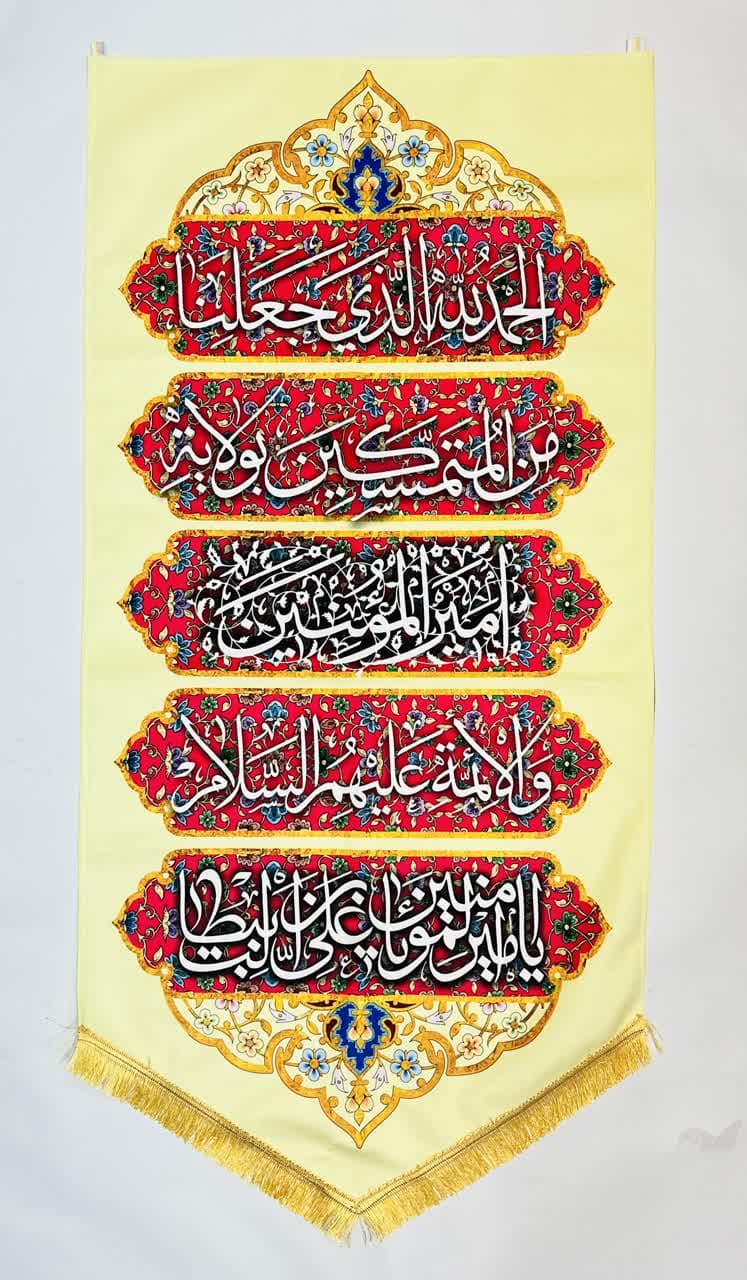 الحَمْدُ لِلّٰهِ الَّذِي جَعَلَنَا
مِنَ المُتَمَسِّكِينَ بِوِلَايَةِ
أَمِيرِ المُؤْمِنِينَ
وَالأَئِمَّةِ عَلَيْهِمُ السَّلَام
يا امير المومنين علي بن ابي طالب